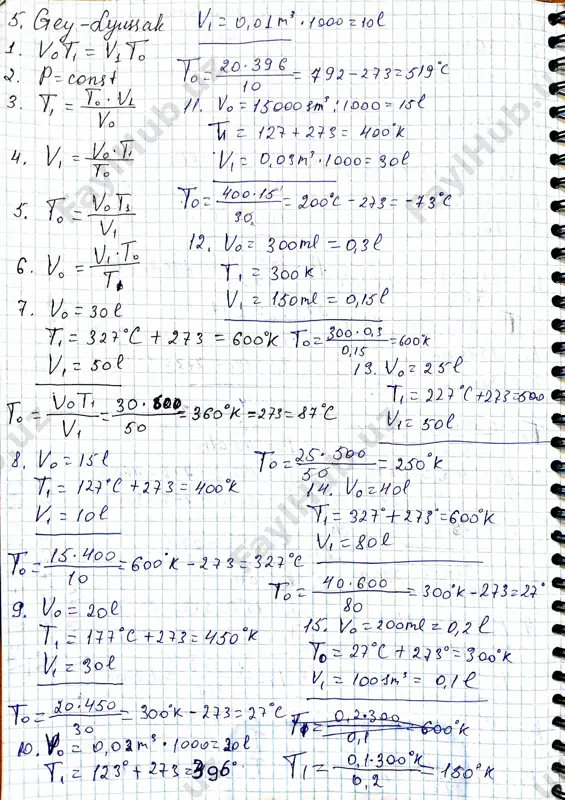 5. Gey-Lyussak
1. V₀T₁ = V₁T₀
2. P = const
3. T₁ = T₀·V₁ / V₀
4. V₁ = V₀·T₁ / T₀
5. T₀ = V₀T₁ / V₁
6. V₀ = V₁·T₀ / T₁
7. V₀ = 30l
T₁ = 327°C + 273 = 600°K
V₁ = 50l
T₀ = V₀T₁ / V₁ = 30·600 / 50 = 360°K = 273 = 87°C
8. V₀ = 15l
T₁ = 127°C + 273 = 400°K
V₁ = 10l
T₀ = 15·400 / 10 = 600°K - 273 = 327°C
9. V₀ = 20l
T₁ = 177°C + 273 = 450°K
V₁ = 30l
T₀ = 20·450 / 30 = 300°K - 273 = 27°C
10. V₀ = 0,02m³·1000 = 20l
T₁ = 123° + 273 = 396°
V₁ = 0,01m³·1000 = 10l
T₀ = 20·396 / 10 = 792 - 273 = 519°C
11. V₀ = 15000sm³:1000 = 15l
T₁ = 127 + 273 = 400°K
V₁ = 0,03m³·1000 = 30l
T₀ = 400·15 / 30 = 200°C - 273 = -73°C
12. V₀ = 300ml = 0,3l
T₁ = 300K
V₁ = 150ml = 0,15l
T₀ = 300·0,3 / 0,15 = 600°K
13. V₀ = 25l
T₁ = 227°C + 273 = 500
V₁ = 50l
T₀ = 25·500 / 50 = 250°K
14. V₀ = 40l
T₁ = 327° + 273° = 600°K
V₁ = 80l
T₀ = 40·600 / 80 = 300°K - 273 = 27°
15. V₀ = 200ml = 0,2l
T₀ = 27°C + 273° = 300°K
V₁ = 100sm³ = 0,1l
T₁ = 0,2·300 / 0,1 = 600°K
T₁ = 0,1·300°K / 0,2 = 150°K
FaylHub.uz
FaylHub.uz
FaylHub.uz
FaylHub.uz